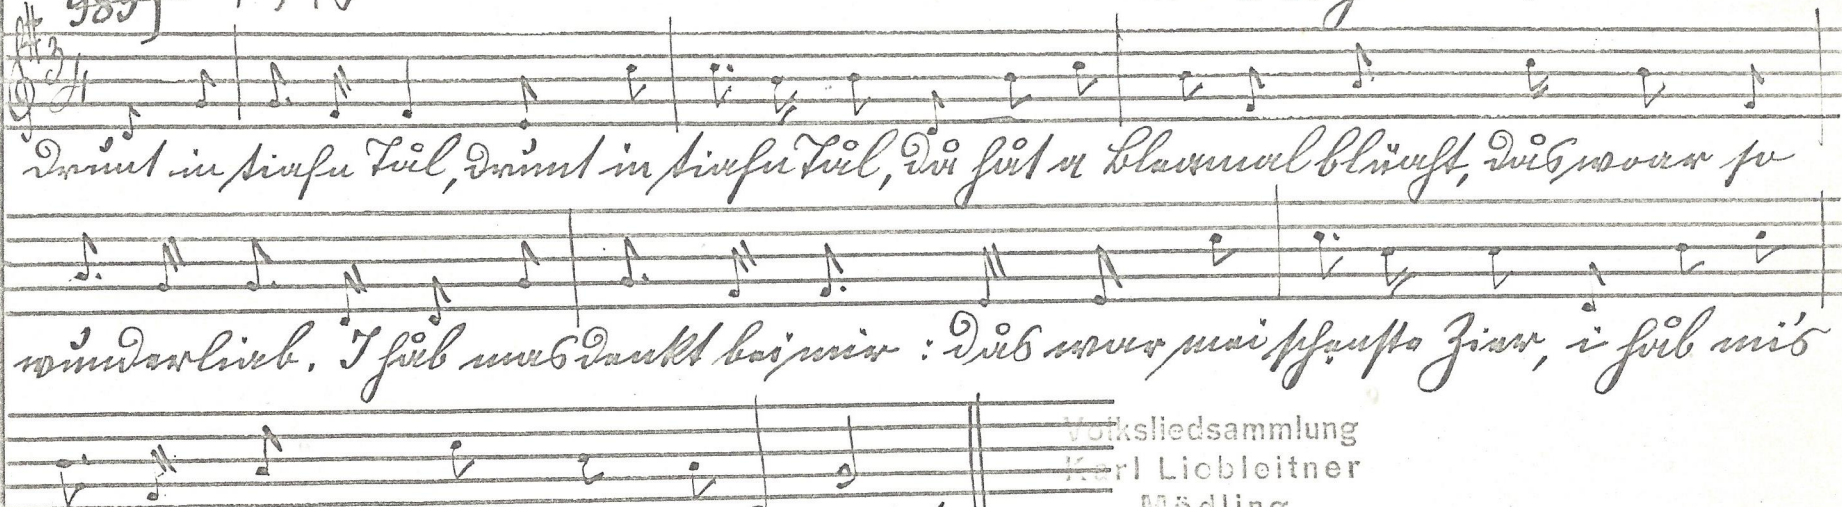 989]
3/4
Drunt in tiafn Tål, drunt in tiafn Tål, då håt a Bleamal blüaht, dås woar so
wunderliab. I håb mas denkt bei mir : dås war mei schenste Zier, i håb mi's
Volksliedsammlung
Karl Liebleitner
Mödling